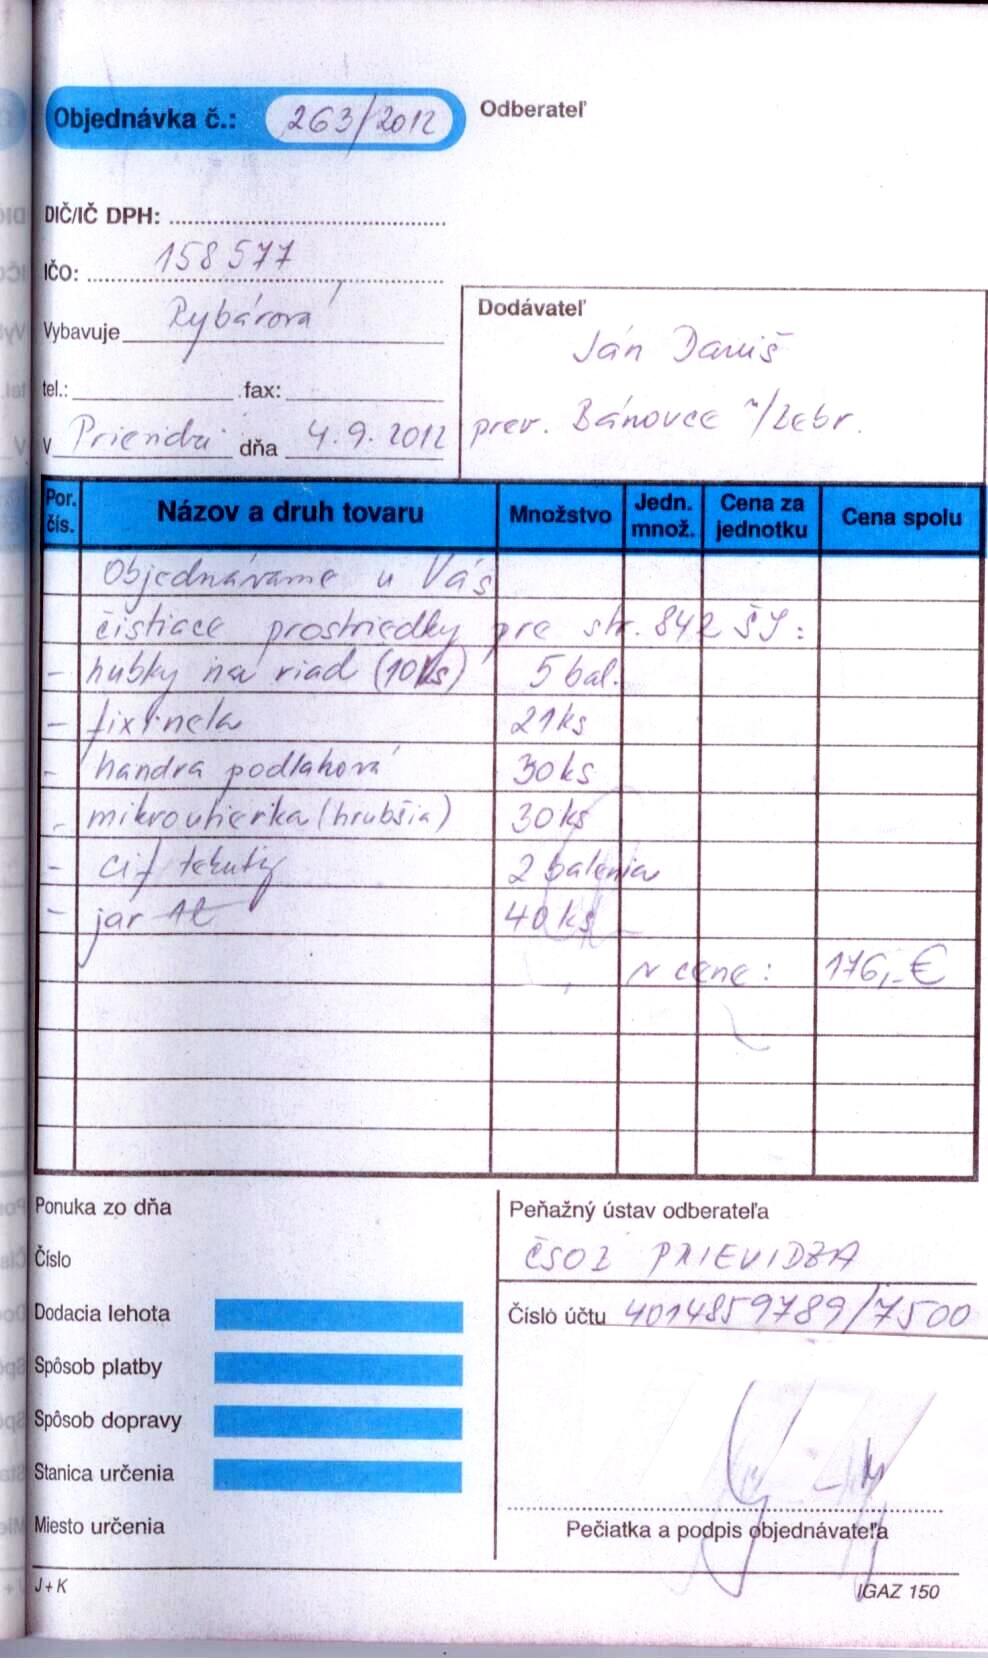 Objednávka č.: 263/2012
Odberateľ
DIČ/IČ DPH:
IČO: 158 577
Vybavuje Rybárová
tel.: fax:
V Prievidzi dňa 4.9.2012
Dodávateľ
Ján Daniš
prev. Bánovce n/Bebr.
Por. čís. Názov a druh tovaru Množstvo Jedn. množ. Cena za jednotku Cena spolu
Objednávame u Vás
čistiace prostriedky pre str. 842 ŠJ:
- hubky na riad (10ks) 5 bal.
- fixinela 21ks
- handra podlahová 30ks
- mikroutierka (hrubšia) 30ks
- cif tekutý 2 balenia
- jar 1l 40ks
v cene: 176,-€
Ponuka zo dňa
Číslo
Dodacia lehota
Spôsob platby
Spôsob dopravy
Stanica určenia
Miesto určenia
Peňažný ústav odberateľa
ČSOB PRIEVIDZA
Číslo účtu 4014859789/7500
Pečiatka a podpis objednávateľa
J+K
IGAZ 150